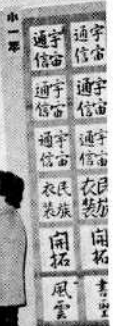 宇宙
通信
宇宙
通信
宇宙
通信
宇宙
通信
宇宙
通信
宇宙
通信
民族
衣装
民族
衣装
開拓
開拓
書聖
風雲
小一